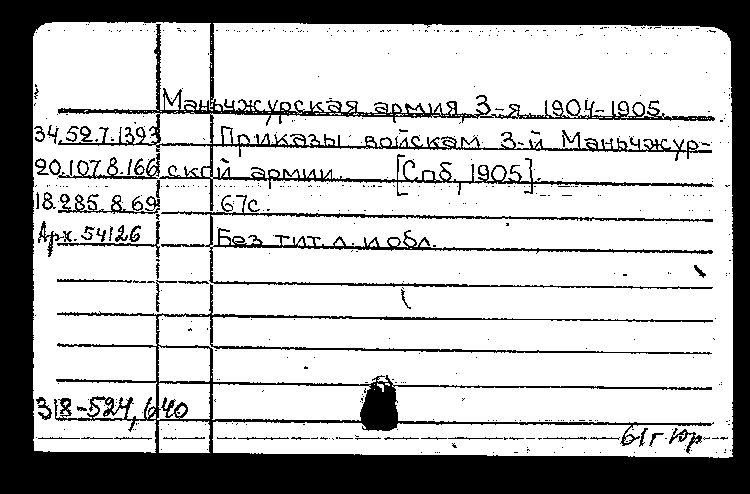 Маньчжурская армия, 3-я. 1904-1905.
34.52.7.1393 Приказы войскам 3-й Маньчжур-
20.107.8.166 ской армии. [Спб, 1905].
18.285.8.69 67с.
Арх. 54126 Без тит. л. и обл.
318-524, 640
61г Юр